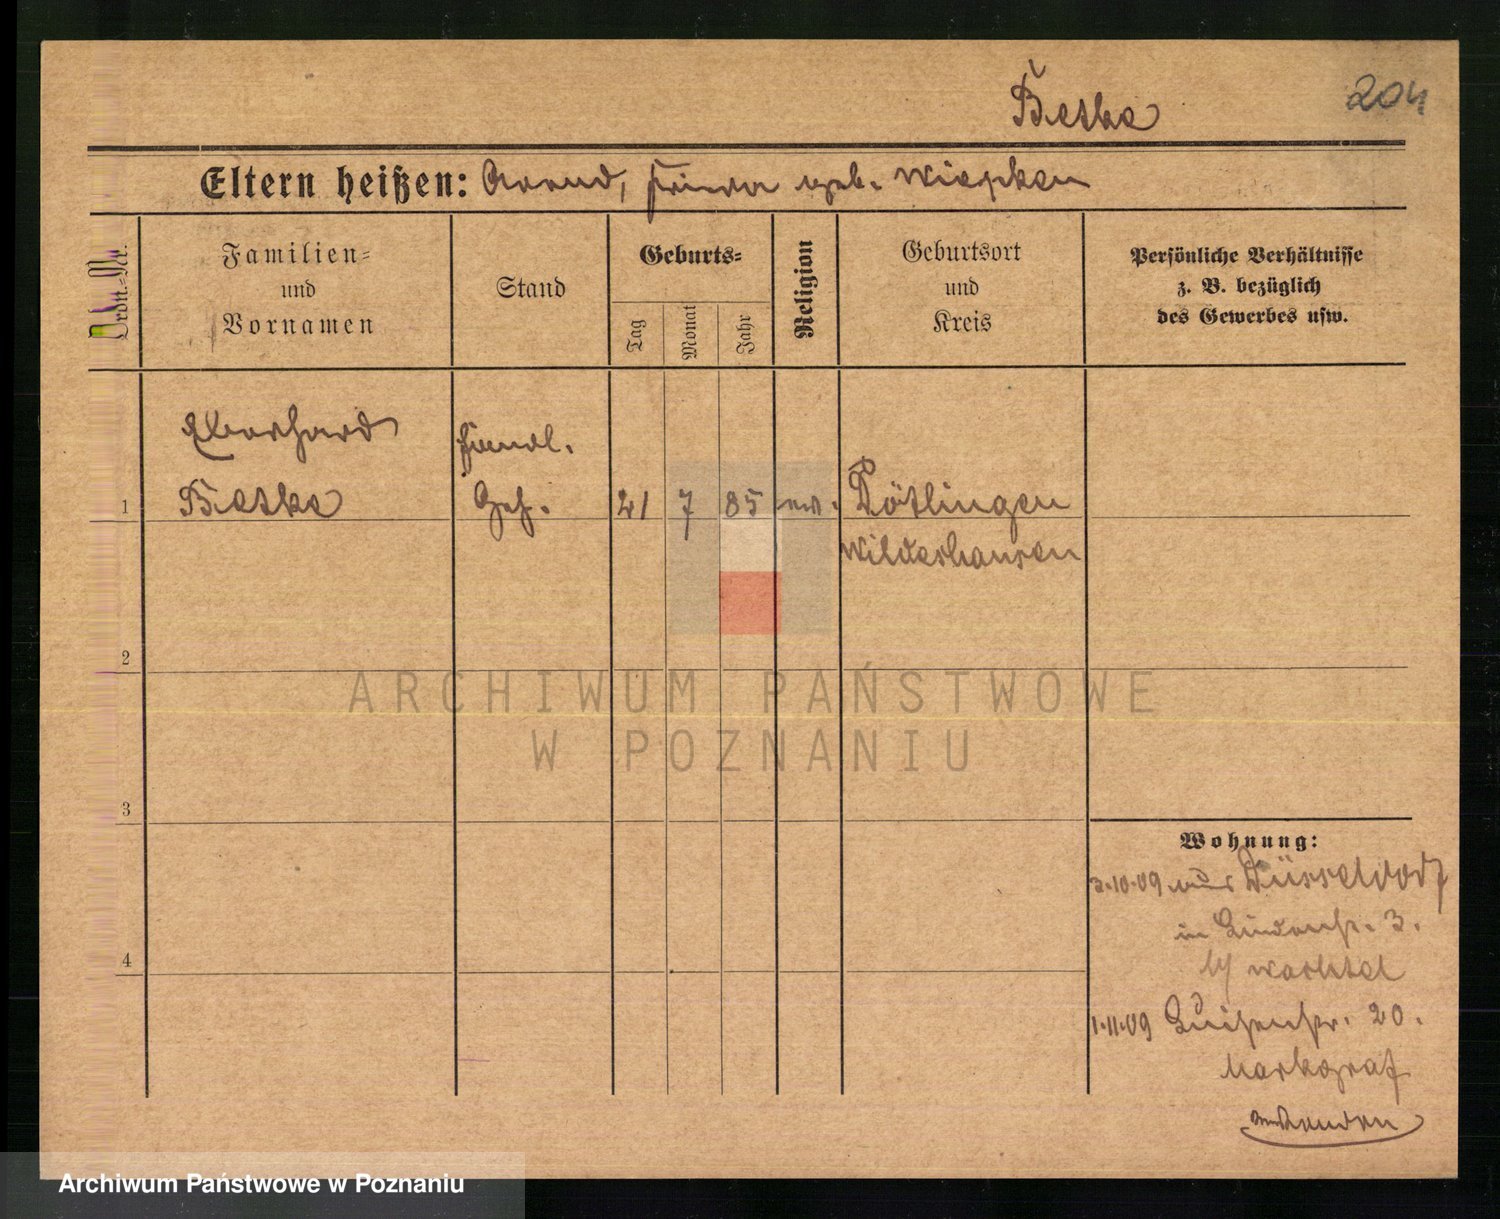 Betke
204
Eltern heißen: Arend, Frieda geb. Wiepken
Ordn.-Nr.
Familien-
und
Vornamen
Stand
Geburts-
Tag
Monat
Jahr
Religion
Geburtsort
und
Kreis
Persönliche Verhältnisse
z. B. bezüglich
des Gewerbes usw.
Eberhard
Handl.
1
Betke
Geh.
21
7
85
ev.
Dötlingen
Wildeshausen
2
3
4
Wohnung:
3.10.09 aus Düsseldorf
in Lindenstr. 3.
b/ Wachtel
1.11.09 Luisenstr. 20.
Markgraf
ARCHIWUM PAŃSTWOWE
W POZNANIU
Archiwum Państwowe w Poznaniu